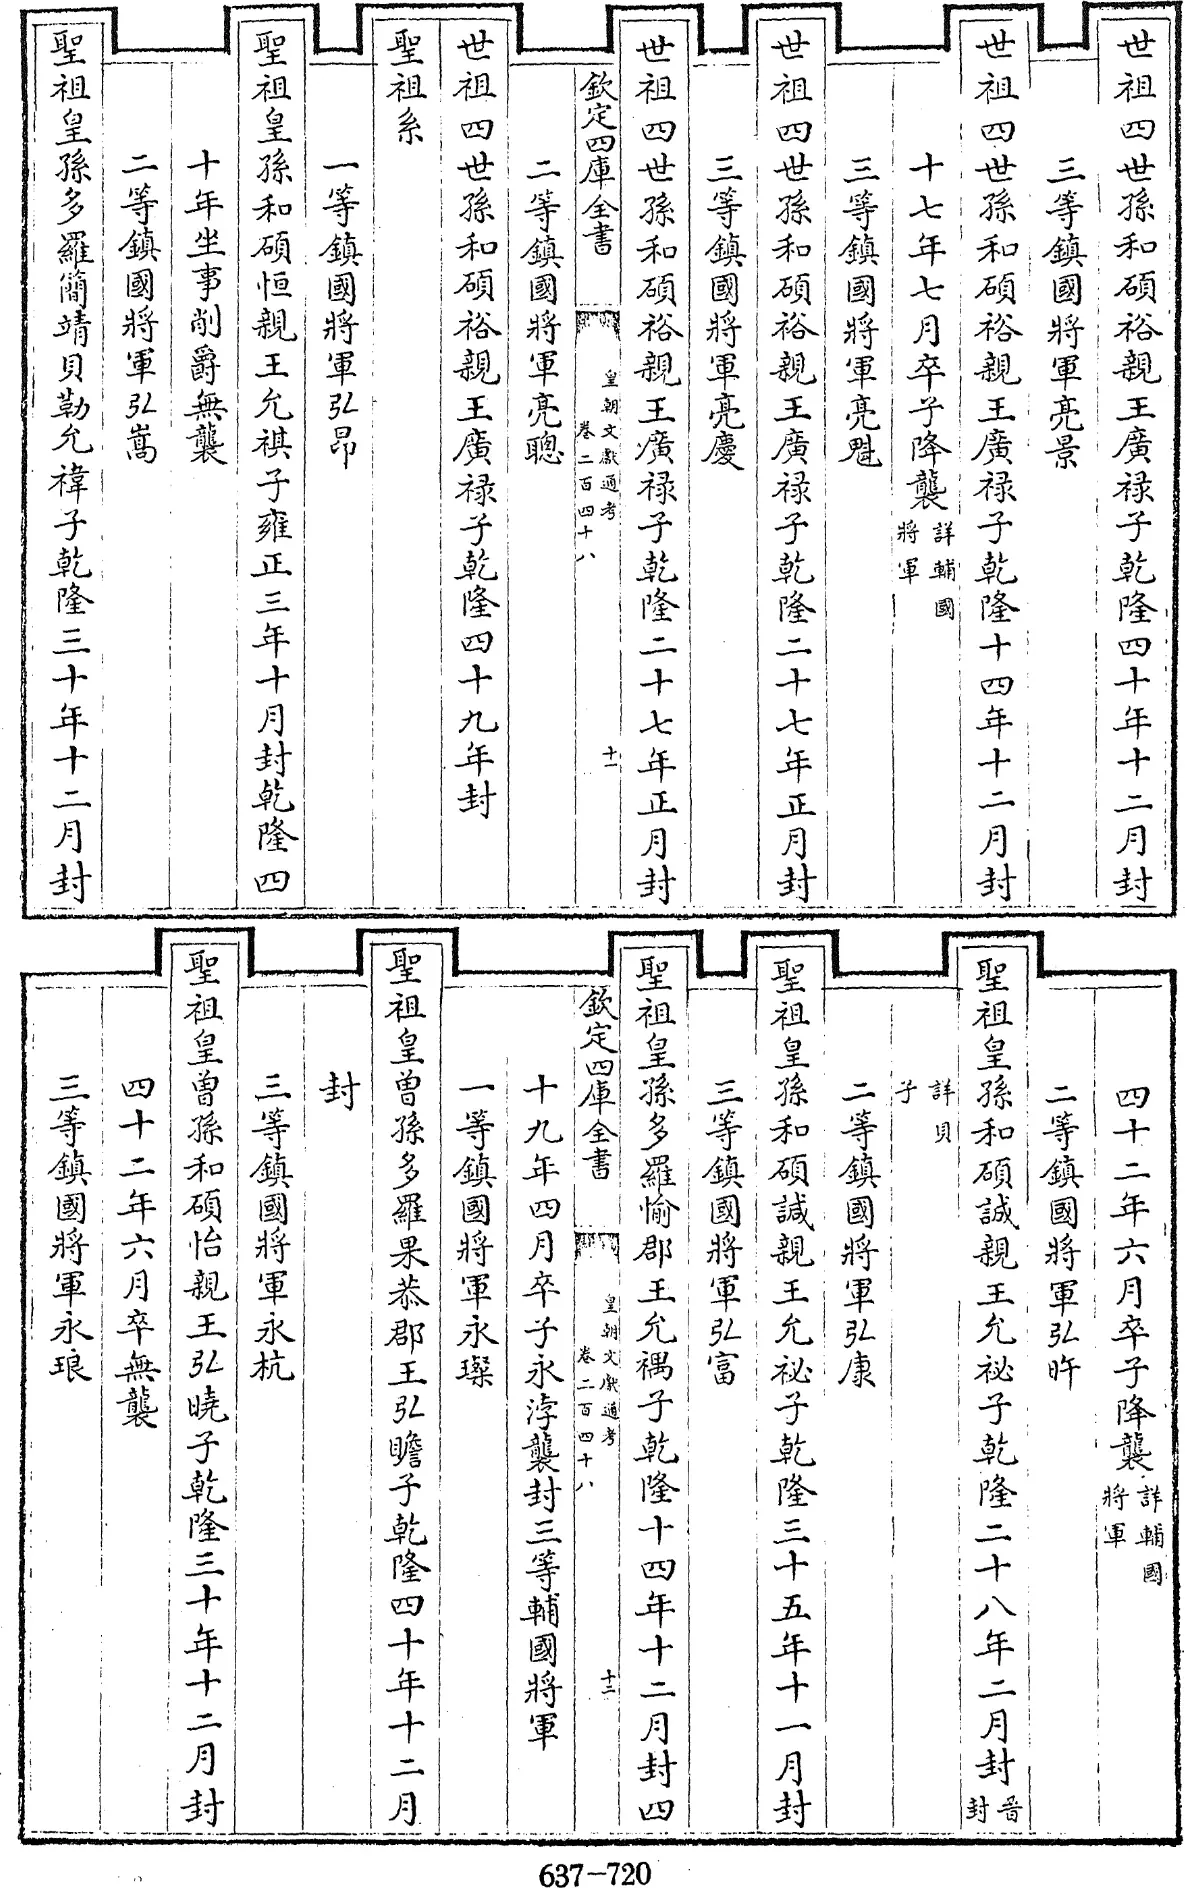 世祖四世孫和碩裕親王廣禄子乾隆四十年十二月封
三等鎮國將軍亮景
世祖四世孫和碩裕親王廣禄子乾隆十四年十二月封
十七年七月卒子降襲詳輔國將軍
三等鎮國將軍亮魁
世祖四世孫和碩裕親王廣禄子乾隆二十七年正月封
三等鎮國將軍亮慶
世祖四世孫和碩裕親王廣禄子乾隆二十七年正月封
欽定四庫全書
皇朝文獻通考
卷二百四十八
十一
二等鎮國將軍亮聰
世祖四世孫和碩裕親王廣禄子乾隆四十九年封
聖祖系
一等鎮國將軍弘昂
聖祖皇孫和碩恒親王允祺子雍正三年十月封乾隆四
十年坐事削爵無襲
二等鎮國將軍弘嵩
聖祖皇孫多羅簡靖貝勒允禕子乾隆三十年十二月封
四十二年六月卒子降襲詳輔國將軍
二等鎮國將軍弘旿
聖祖皇孫和碩諴親王允祕子乾隆二十八年二月封晋封
詳貝子
二等鎮國將軍弘康
聖祖皇孫和碩諴親王允祕子乾隆三十五年十一月封
三等鎮國將軍弘富
聖祖皇孫多羅愉郡王允禑子乾隆十四年十二月封四
欽定四庫全書
皇朝文獻通考
卷二百四十八
十二
十九年四月卒子永浡襲封三等輔國將軍
一等鎮國將軍永璨
聖祖皇曾孫多羅果恭郡王弘瞻子乾隆四十年十二月
封
三等鎮國將軍永杭
聖祖皇曾孫和碩怡親王弘曉子乾隆三十年十二月封
四十二年六月卒無襲
三等鎮國將軍永琅
637-720